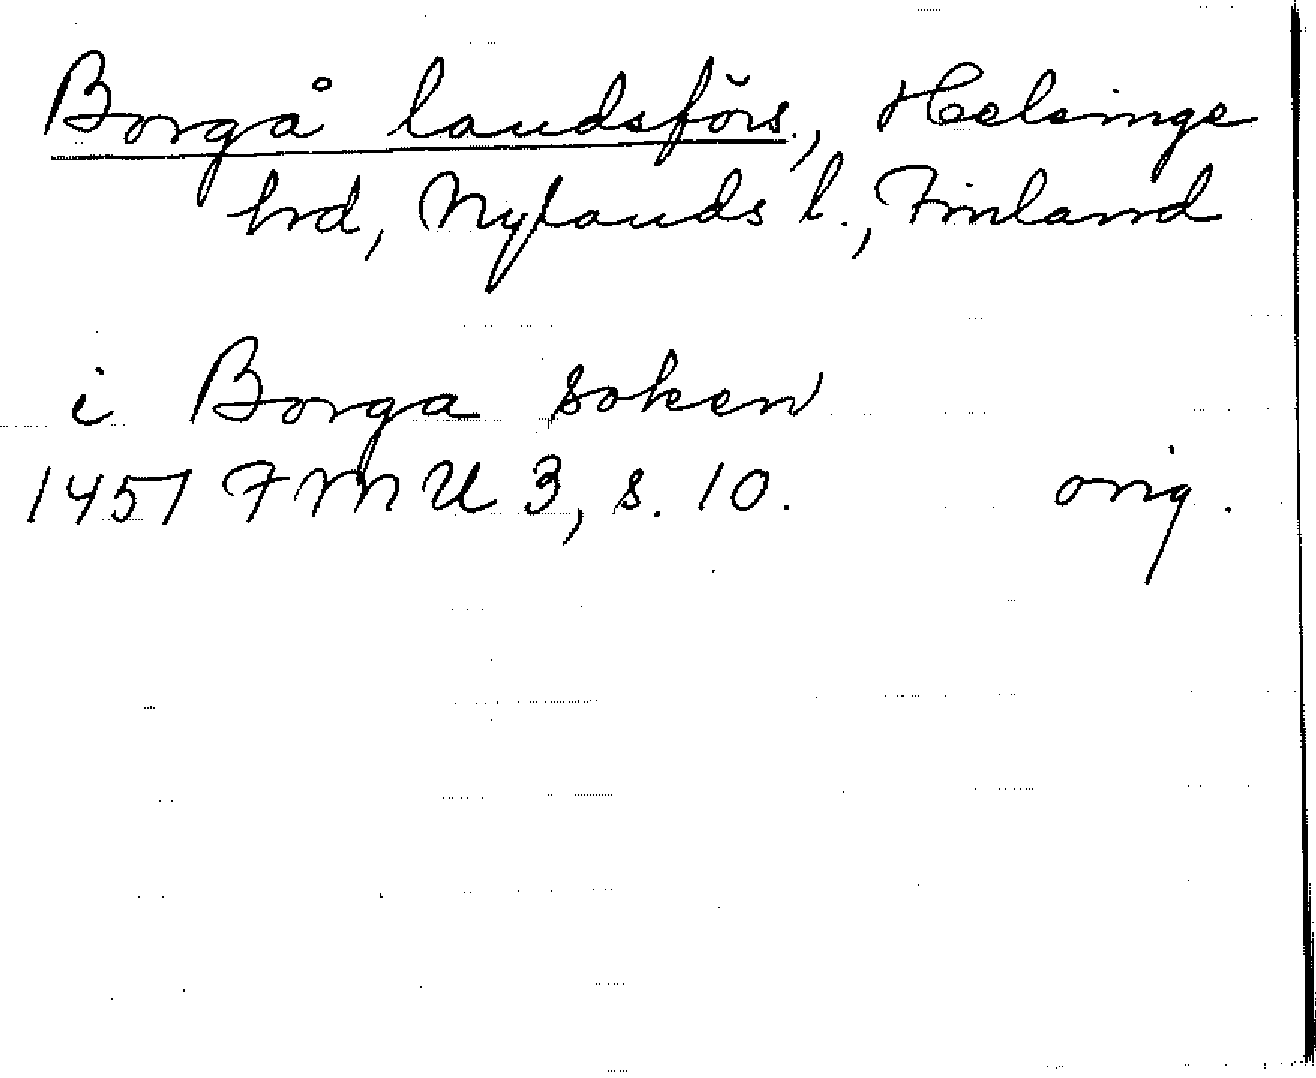 Borgå landsförs., Helsinge
hrd, Nylands l., Finland
i Borga soken
1457 FMU 3, s. 10. orig.